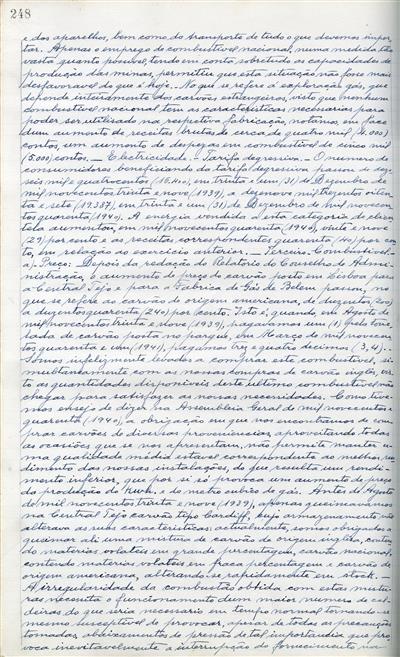 248
e dos aparelhos, bem como do transporte de tudo o que devemos impor-
tar. Apenas o emprego de combustivel nacional, numa medida tão
vasta quanto possivel, tendo em conta, sobretudo as capacidades de
produção das minas, permitiu que esta situação não fosse mais
desfavoravel do que é hoje. No que se refere á exploração gás, que
depende inteiramente dos carvões estrangeiros, visto que nenhum
combustivel nacional tem as caracteristicas necessarias para
poder ser utilisado na respetiva fabricação, notamos, em face
dum aumento de receitas brutas de cerca de quatro mil (4.000)
contos, um aumento de despesas em combustivel de cinco mil
(5.000) contos. — Electricidade. — Tarifa degressiva. — O numero de
consumidores beneficiando da tarifa degressiva passou de dez-
seis mil e quatrocentos (16.400), em trinta e um (31) de Dezembro de
mil novecentos trinta e nove (1939), a dezenove mil trezentos oiten-
ta e sete (19.387), em trinta e um (31) de Dezembro de mil novecen-
tos quarenta (1940). A energia vendida a esta categoria de clien-
tela aumentou, em mil novecentos quarenta (1940), vinte e nove
(29) por cento e as receitas correspondentes quarenta (40) por cen-
to, em relação ao exercicio anterior. — Terceiro: Combustivel. —
a) Preço: Depois da redação do Relatorio do Conselho de Admi-
nistração, o aumento de preço do carvão posto em Lisboa para
a Central Tejo e para a Fabrica de Gás de Belem passou, no
que se refere ao carvão de origem americana, de duzentos (200)
a duzentos quarenta (240) por cento. Isto é, quando, em Agosto de
mil novecentos trinta e nove (1939), pagavamos um (1) pela tone-
lada de carvão posta no parque, em Março de mil novecen-
tos quarenta e um (1941), pagamos tres e quatro decimos (3,4). —
Somos infelizmente levados a comprar este combustivel, si-
multaneamente com as nossas compras de carvão inglês, vis-
to as quantidades disponiveis deste ultimo combustivel não
chegar para satisfazer as nossas necessidades. Como tive-
mos ensejo de dizer na Assembleia Geral de mil novecentos e
quarenta (1940), a obrigação em que nos encontramos de com-
prar carvões de diversas proveniencias, aproveitando todas
as ocasiões que se nos apresentam, não permite manter u-
ma qualidade média estavel correspondente ao melhor ren-
dimento das nossas instalações, do que resulta um rendi-
mento inferior, que por si só provoca um aumento de preço
da produção do Kwh. e do metro cubico de gás. Antes de Agosto
de mil novecentos trinta e nove (1939), apenas queimavamos
na Central Tejo carvão tipo Cardiff, cujo armazenamento não
alterava as suas caracteristicas; actualmente, somos obrigados a
queimar ali uma mistura de carvão de origem inglêsa, conten-
do materias volateis em grande percentagem, carvão nacional,
contendo materias volateis em fraca percentagem e carvão de
origem americana, alterando-se rapidamente em stock. —
A irregularidade da combustão obtida com esta mistu-
ra necessita o funcionamento dum maior numero de cal-
deiras do que seria necessario em tempo normal tornando-se
mesmo susceptivel de provocar, apesar de todas as precauções
tomadas, abaixamentos de pressão de tal importancia que pro-
voca inevitavelmente a interrupção do fornecimento na